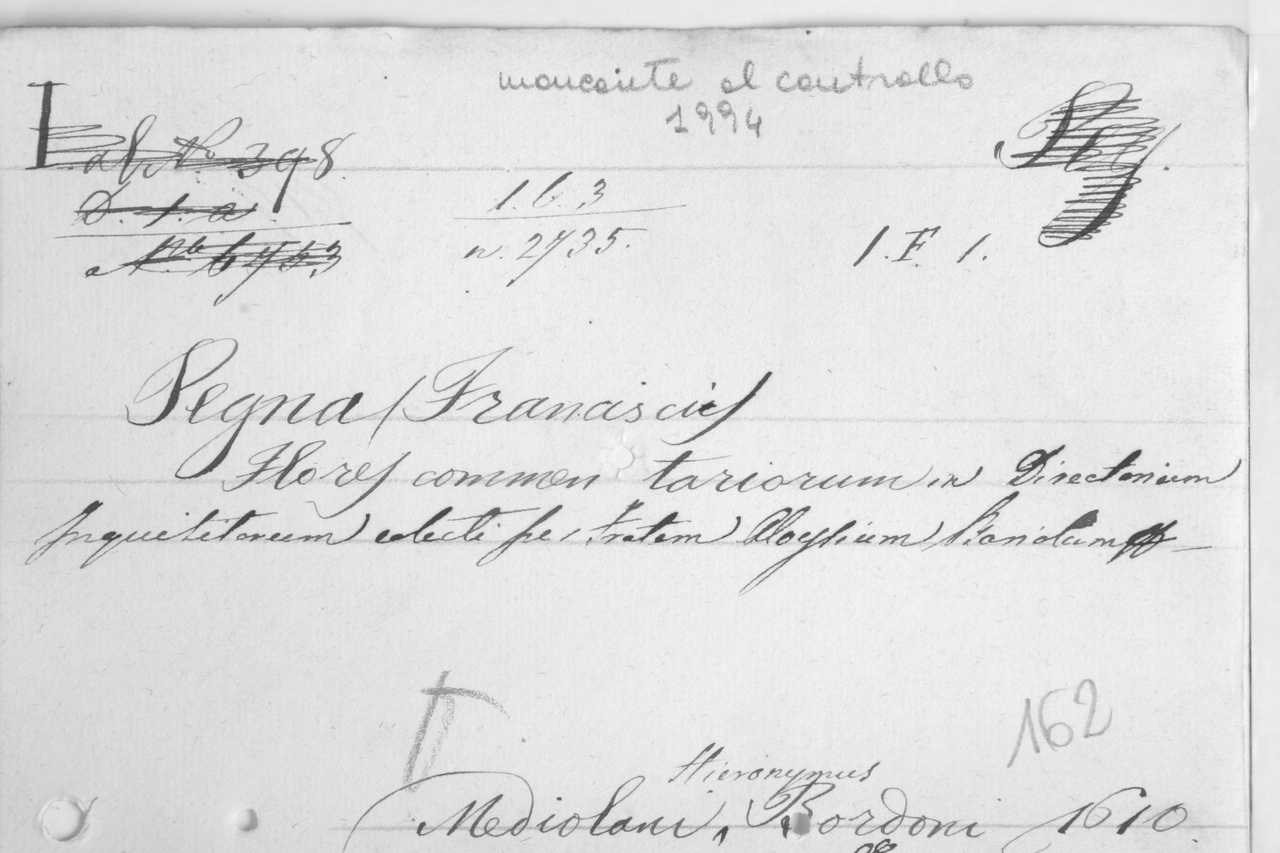 mancante al controllo
1994
398
D. 1. a
1. b. 3
n. 2735.
1. F. 1.
Nº 6753
Pegna (Francisci)
Flores commentariorum in Directorium
Inquisitorum collecti per fratem Aloysium
162
Hieronymus
Mediolani, Bordoni 1610.